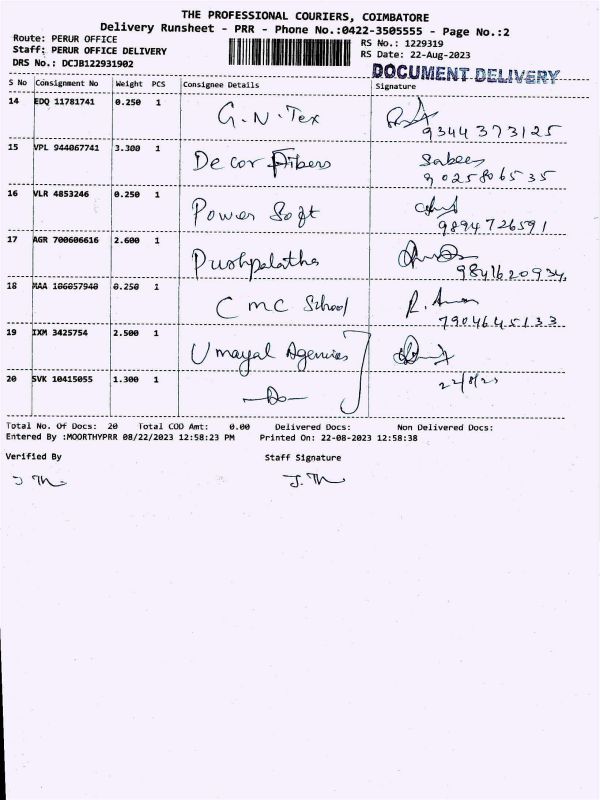 THE PROFESSIONAL COURIERS, COIMBATORE
Delivery Runsheet - PRR - Phone No.:0422-3505555 - Page No.:2
Route: PERUR OFFICE
RS No.: 1229319
Staff: PERUR OFFICE DELIVERY
RS Date: 22-Aug-2023
DRS No.: DCJB122931902
DOCUMENT DELIVERY
S No Consignment No Weight PCS Consignee Details Signature
14 EDQ 11781741 0.250 1 G.N.Tex
9344373125
15 VPL 944067741 3.300 1 Decor Fibers Sabees
9025806535
16 VLR 4853246 0.250 1 Power Soft
9894726591
17 AGR 700606616 2.600 1 Pushpalatha
9841620934
18 MAA 106057940 0.250 1 CMC School
7904645133
19 IXM 3425754 2.500 1 Umayal Agencies
20 SVK 10415055 1.300 1 —Do— 22/8/23
Total No. Of Docs: 20 Total COD Amt: 0.00 Delivered Docs: Non Delivered Docs:
Entered By :MOORTHYPRR 08/22/2023 12:58:23 PM Printed On: 22-08-2023 12:58:38
Verified By Staff Signature